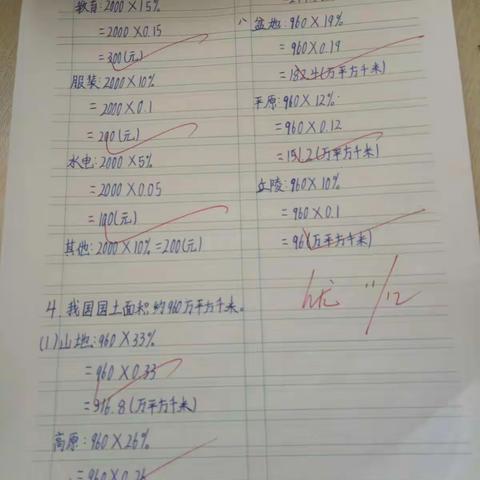 教育:2000×15%
=2000×0.15
=300(元)
服装:2000×10%
=2000×0.1
=200(元)
水电:2000×5%
=2000×0.05
=100(元)
其他:2000×10%=200(元)
4.我国国土面积约960万平方千米。
(1)山地:960×33%
=960×0.33
=316.8(万平方千米)
高原:960×26%
=960×0.26
盆地:960×19%
=960×0.19
=182.4(万平方千米)
平原:960×12%
=960×0.12
=115.2(万平方千米)
丘陵:960×10%
=960×0.1
=96(万平方千米)
11/12